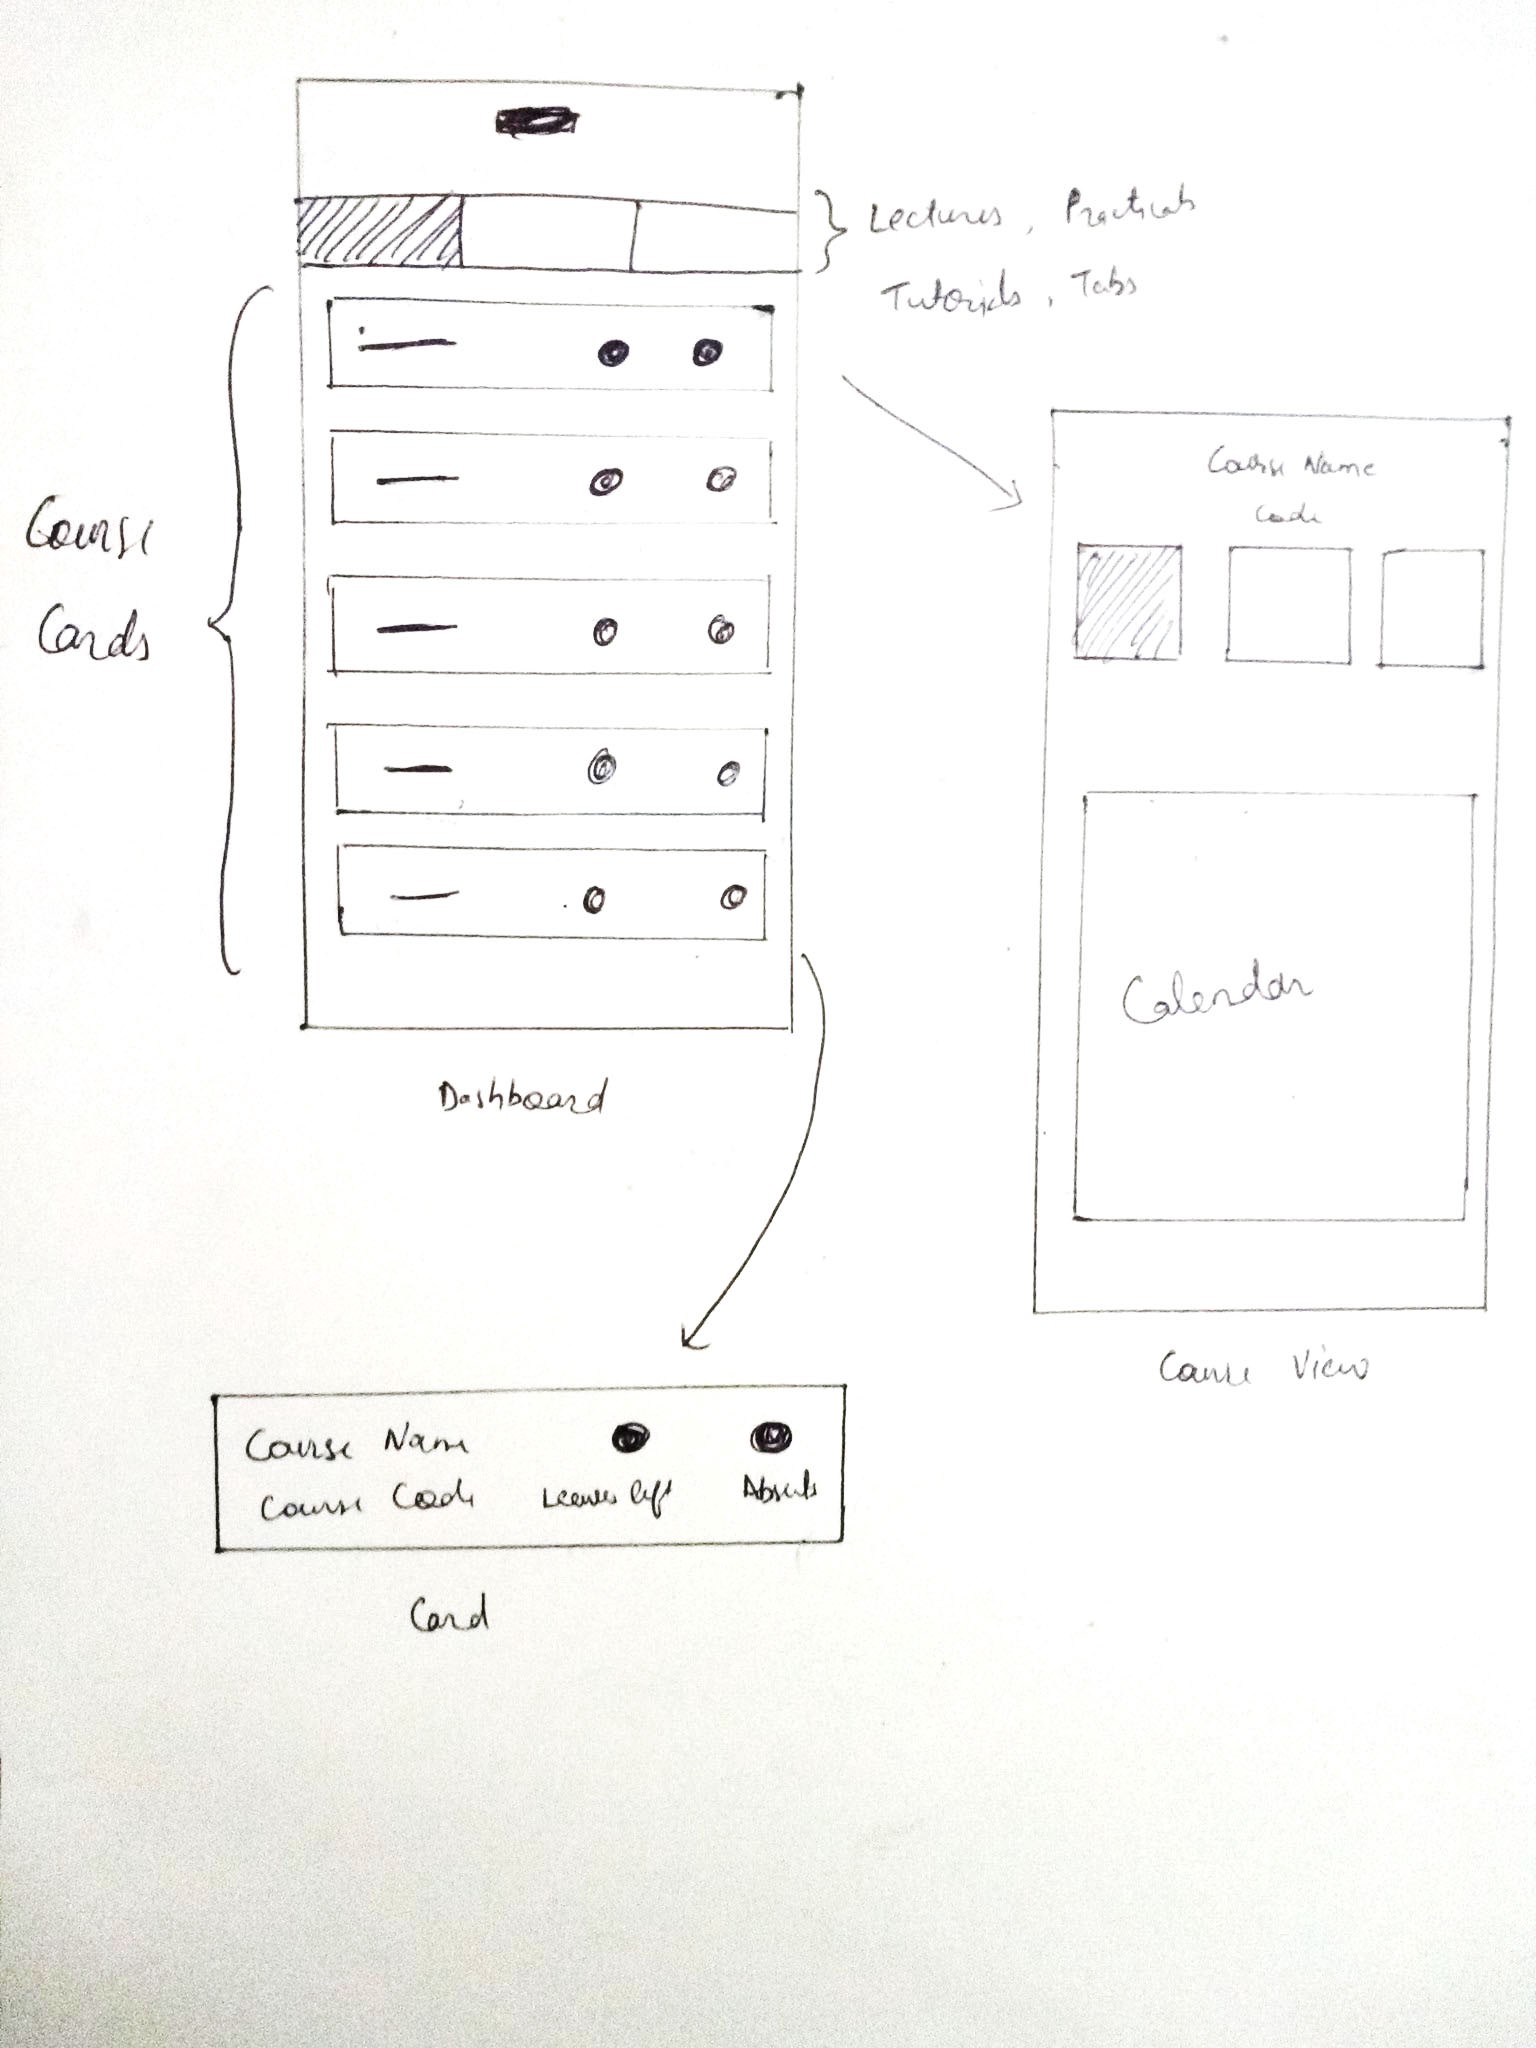 Lectures, Practicals
Tutorials, Tabs
Course
Cards
Course Name
Code
Calendar
Dashboard
Course View
Course Name
Course Code
Leaves left
Absents
Card